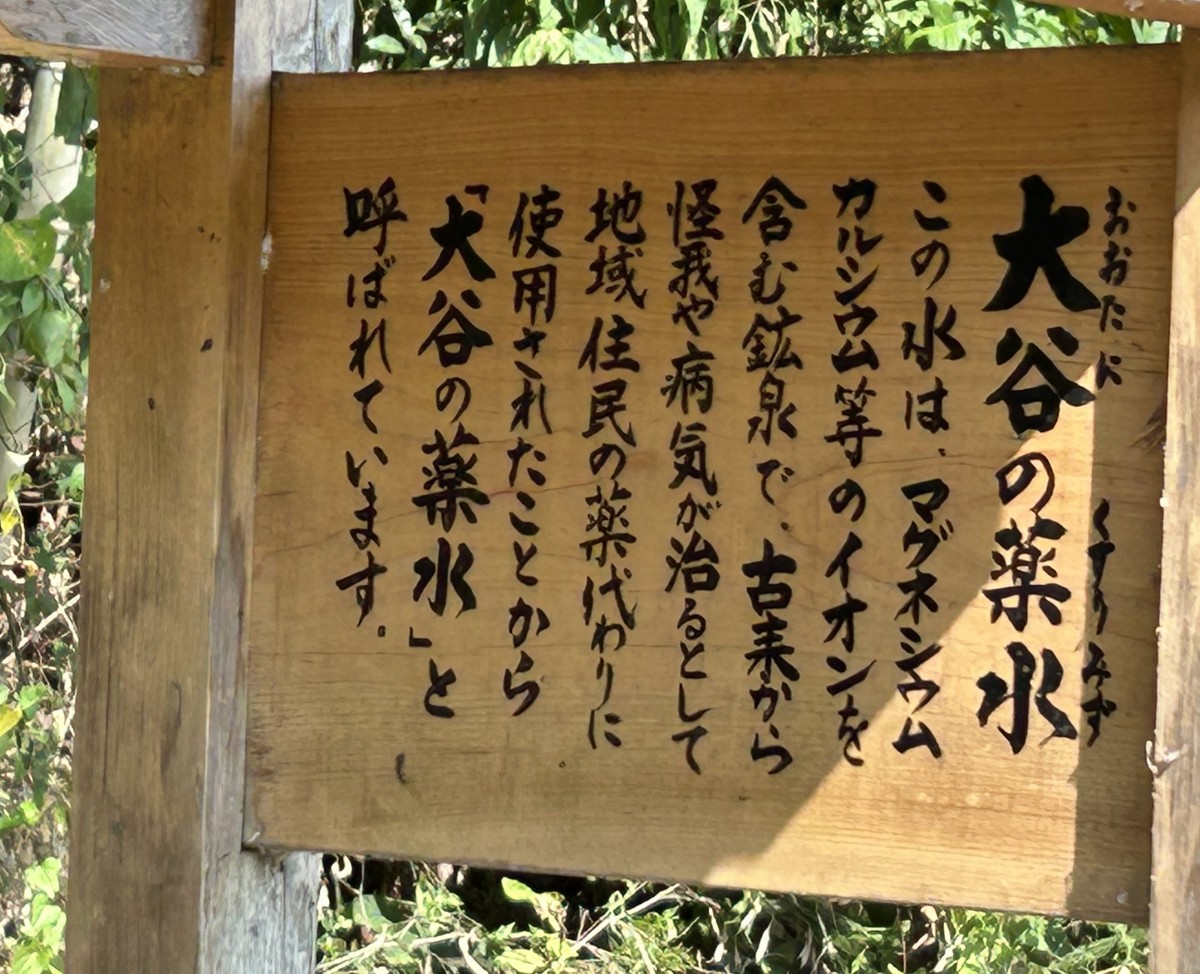 おおたに くすりみず
大谷の薬水
この水は、マグネシウム
カルシウム等のイオンを
含む鉱泉で、古来から
怪我や病気が治るとして
地域住民の薬代わりに
使用されたことから
「大谷の薬水」と
呼ばれています。